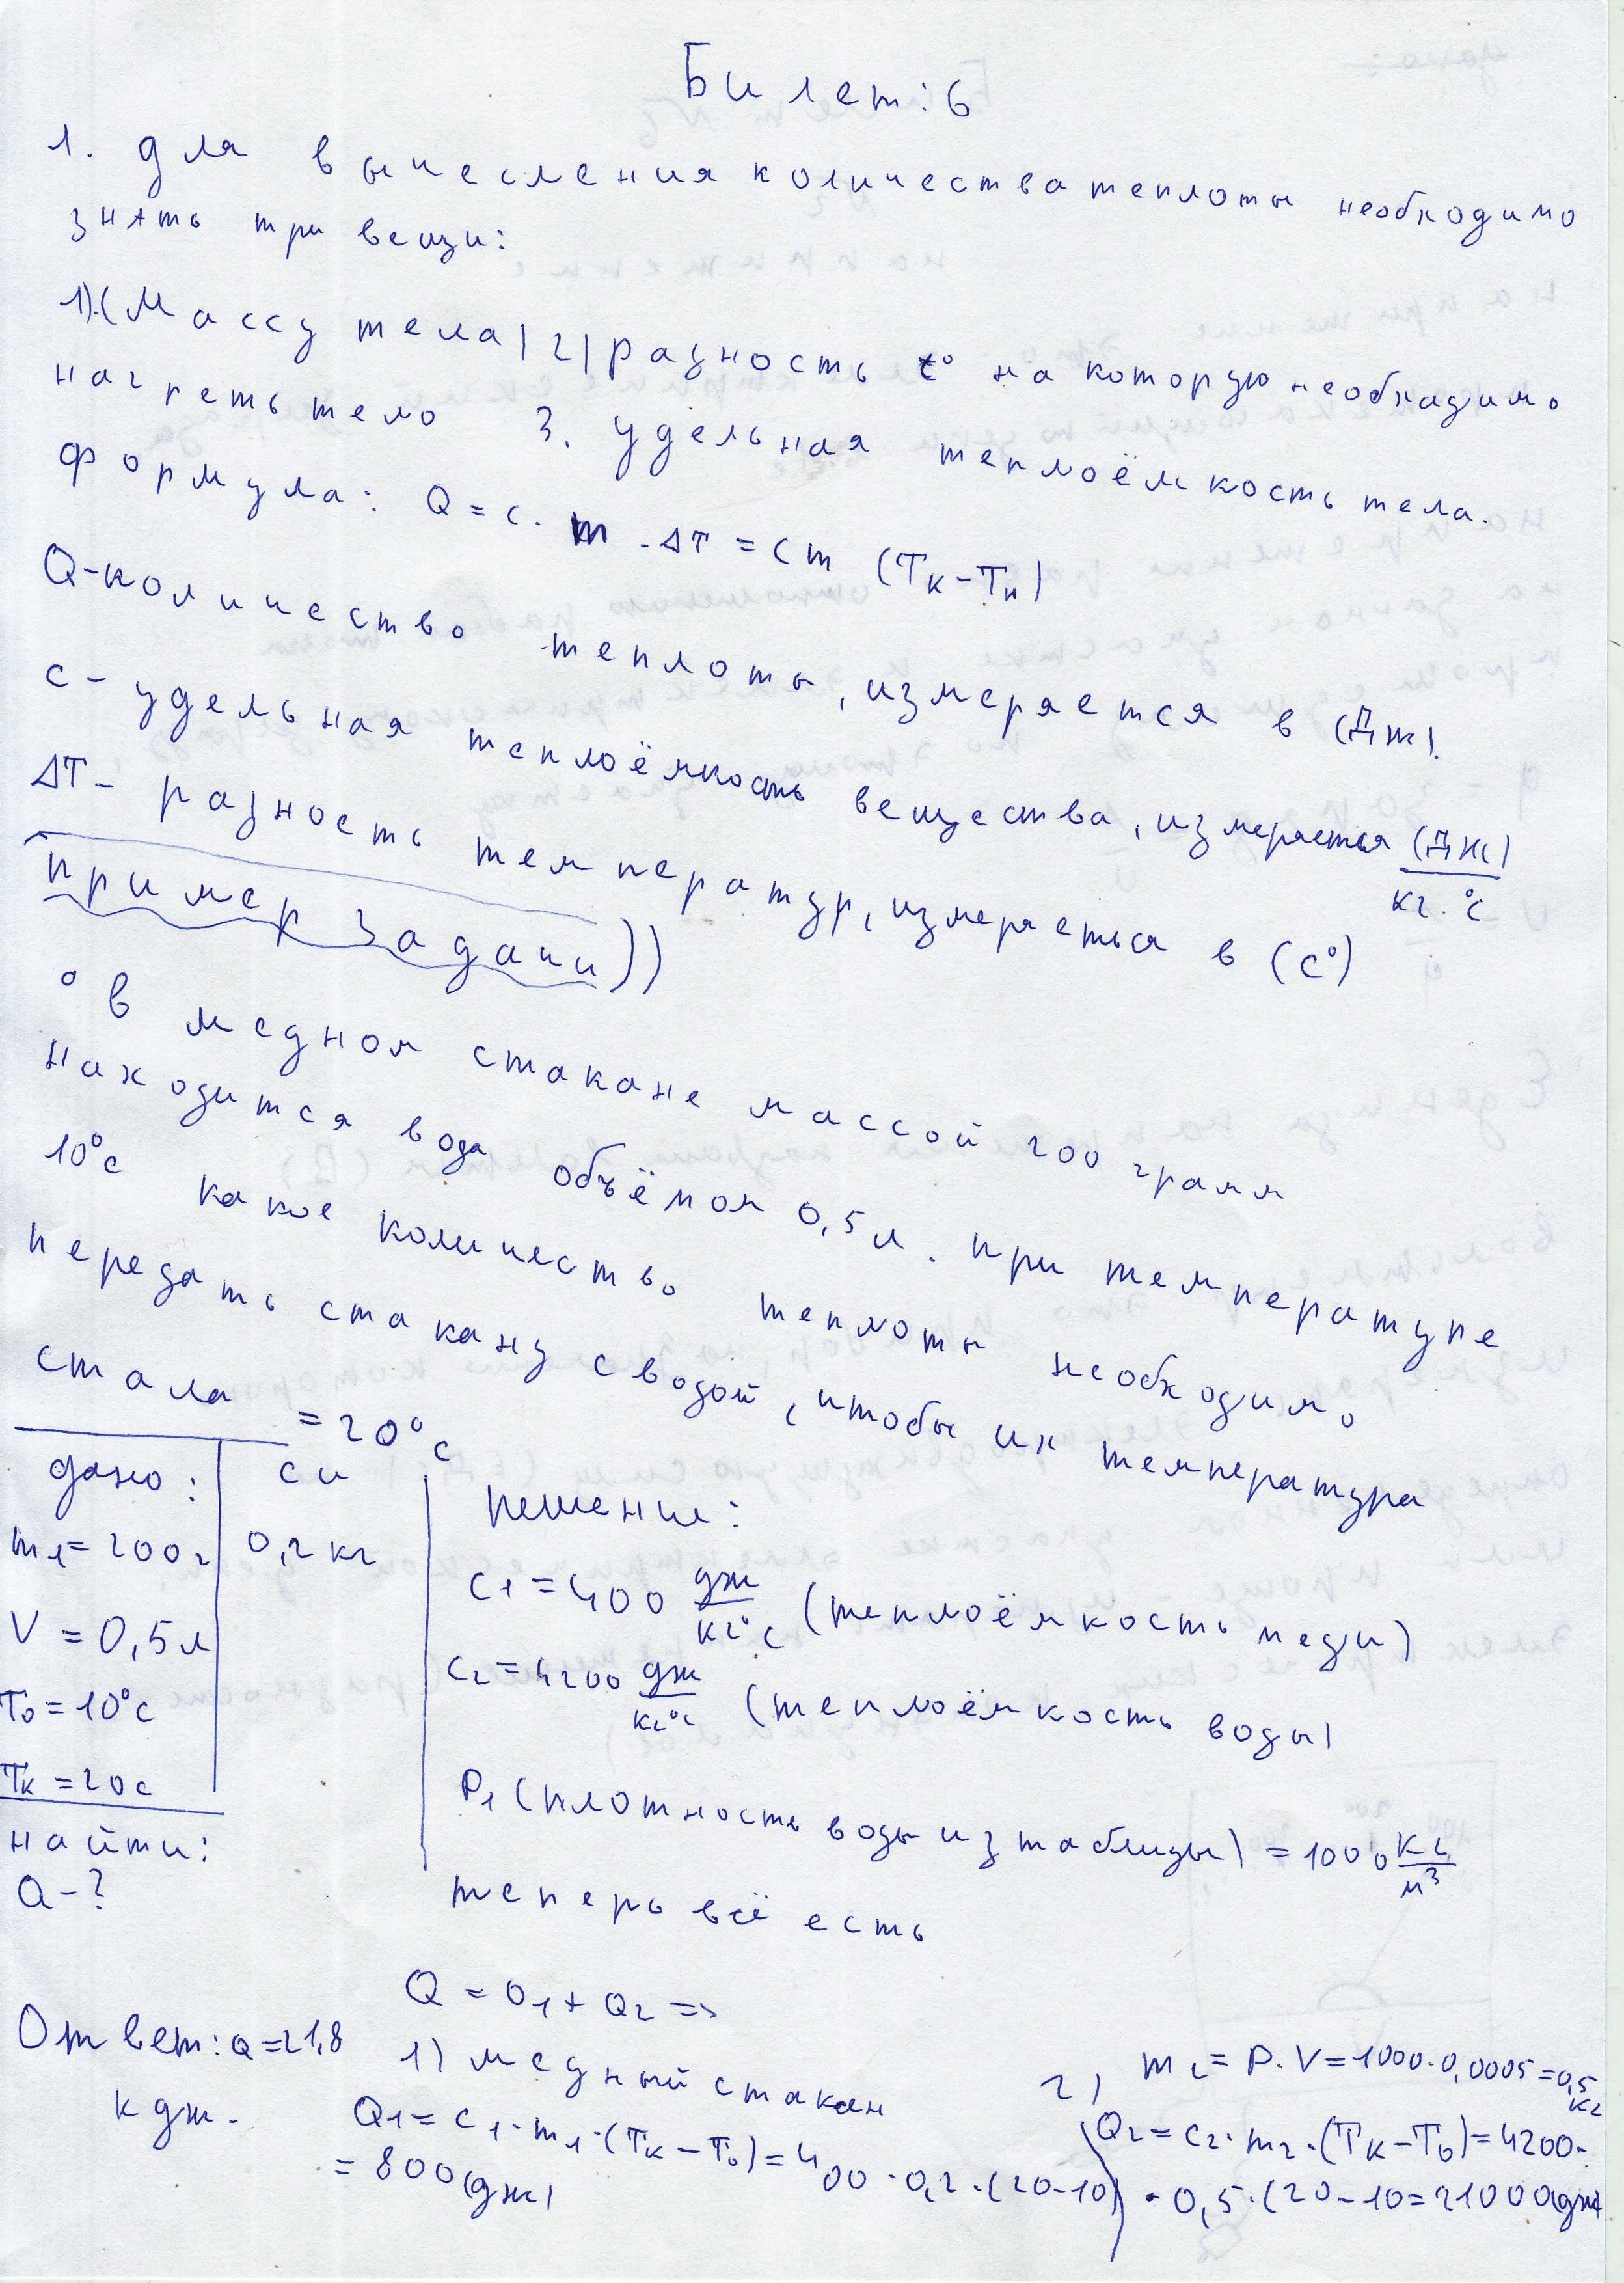 Билет: 6
1. Для вычесления количества теплоты необходимо
знать три вещи:
1).(Массу тела) 2) разность t° на которую необходимо
нагреть тело 3. удельная теплоёмкость тела.
Формула: Q = c. m . ΔT = cm (Tк - Tн)
Q - количество теплоты, измеряется в (Дж).
c - удельная теплоёмкость вещества, измеряется (Дж)/кг.°с
ΔT - разность температур, измеряеться в (с°)
Пример задачи))
° В медном стакане массой 200 грамм
находится вода объёмом 0,5 л. при температуре
10°с какое количество теплоты необходимо
передать стакану с водой, чтобы их температура
стала = 20°с
дано: си
m1 = 200г 0,2 кг
V = 0,5 л
T0 = 10°с
Tк = 20с
найти:
Q - ?
решение:
c1 = 400 дж/кг°с (теплоёмкость меди)
c2 = 4200 дж/кг°с (теплоёмкость воды)
P1 (плотность воды из таблицы) = 1000 кг/м³
теперь всё есть
Q = Q1 + Q2 =>
1) медный стакан
Q1 = c1 · m1 · (Tк - T0) = 400 · 0,2 · (20-10)
= 800(дж)
2) m2 = P. V = 1000. 0,0005 = 0,5 кг
Q2 = c2 · m2 · (Tк - T0) = 4200·
· 0,5 · (20 - 10 = 21000(дж)
Ответ: Q = 21,8
кдж.